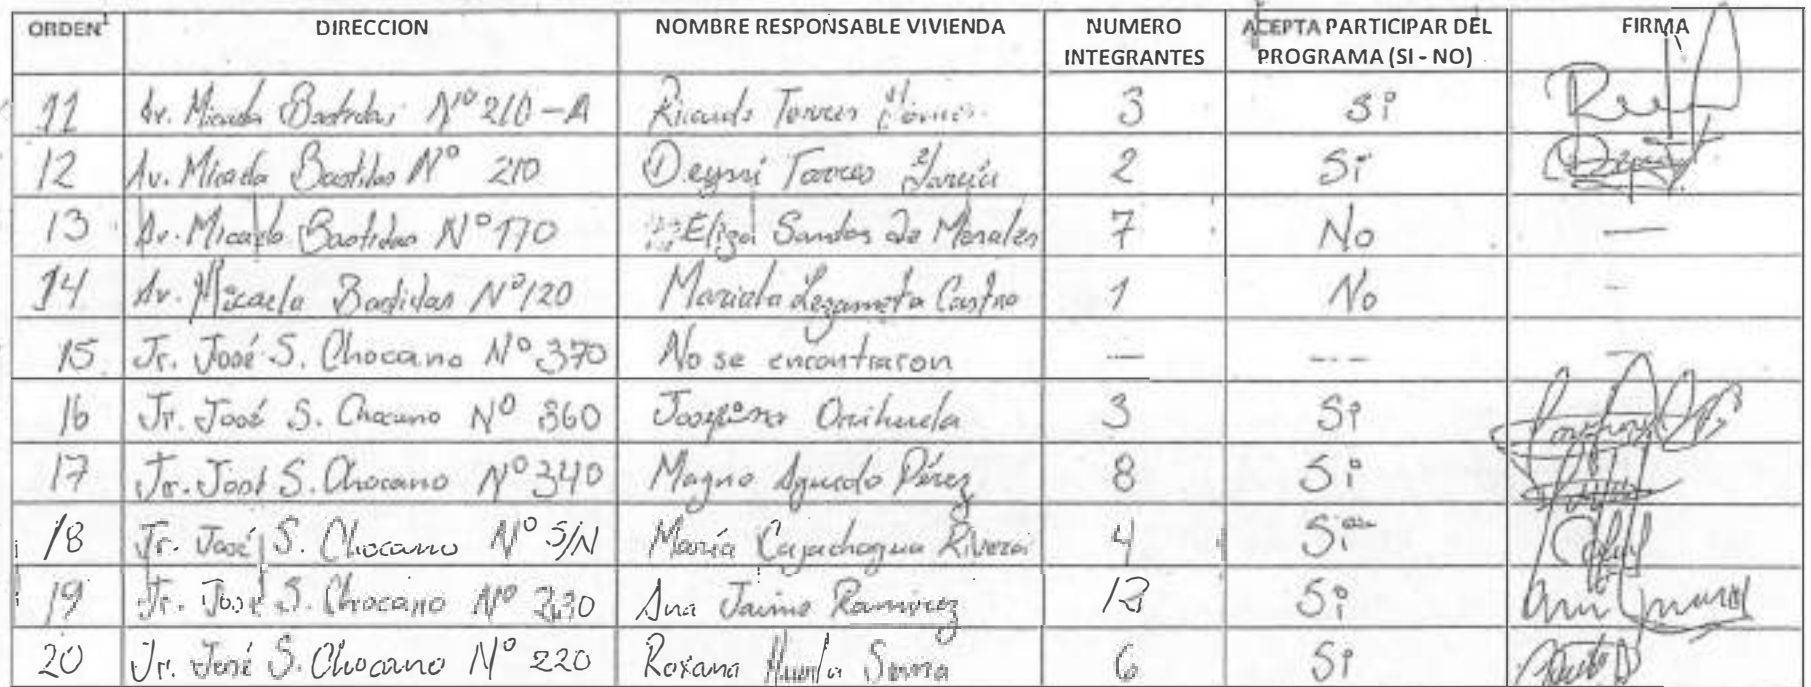 ORDEN DIRECCION NOMBRE RESPONSABLE VIVIENDA NUMERO INTEGRANTES ACEPTA PARTICIPAR DEL PROGRAMA (SI - NO) FIRMA
11 Av. Micaela Bastidas N° 210-A Ricardo Torres 3 Si
12 Av. Micaela Bastidas N° 210 Deysi Torres García 2 Si
13 Av. Micaela Bastidas N° 170 Eliza Santos de Morales 7 No —
14 Av. Micaela Bastidas N° 120 Mariela Lezameta Castro 1 No -
15 Jr. José S. Chocano N° 370 No se encontraron — --- —
16 Jr. José S. Chocano N° 360 Orihuela 3 Si
17 Jr. José S. Chocano N° 340 Magno Aguedo Pérez 8 Si
18 Jr. José S. Chocano N° S/N María Cajachagua Rivera 4 Si
19 Jr. José S. Chocano N° 230 Ana Jaime Ramirez Si
20 Jr. José S. Chocano N° 220 Roxana 6 Si